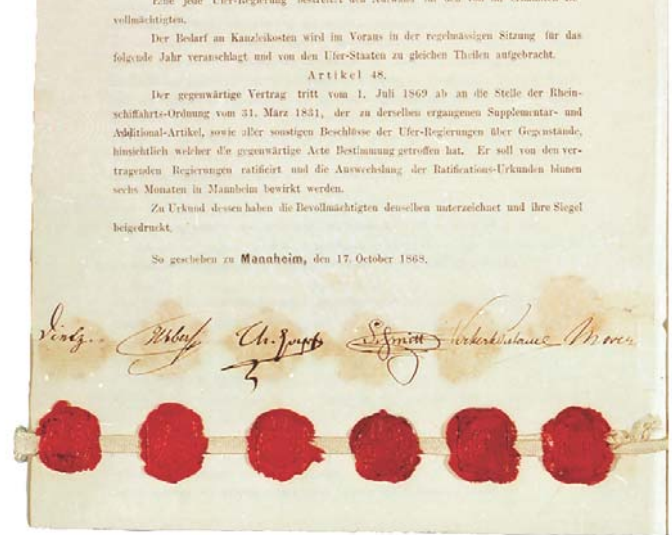 Eine jede Ufer-Regierung bestreitet den Aufwand für den von ihr ernannten Be-
vollmächtigten.
Der Bedarf an Kanzleikosten wird im Voraus in der regelmässigen Sitzung für das
folgende Jahr veranschlagt und von den Ufer-Staaten zu gleichen Theilen aufgebracht.
Artikel 48.
Der gegenwärtige Vertrag tritt vom 1. Juli 1869 ab an die Stelle der Rhein-
schiffahrts-Ordnung vom 31. März 1831, der zu derselben ergangenen Supplementar- und
Additional-Artikel, sowie aller sonstigen Beschlüsse der Ufer-Regierungen über Gegenstände,
hinsichtlich welcher die gegenwärtige Acte Bestimmung getroffen hat. Er soll von den ver-
tragenden Regierungen ratificirt und die Auswechslung der Ratifications-Urkunden binnen
sechs Monaten in Mannheim bewirkt werden.
Zu Urkund dessen haben die Bevollmächtigten denselben unterzeichnet und ihre Siegel
beigedruckt.
So geschehen zu Mannheim, den 17. October 1868.
Dietz. Schmitt